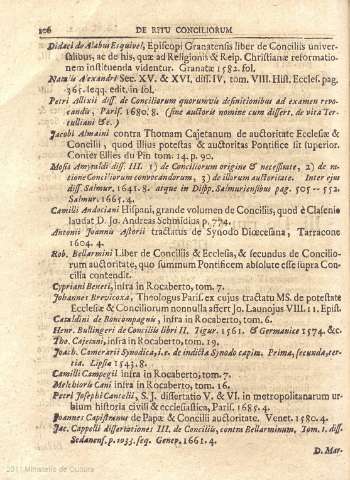 206 DE RITU CONCILIORUM
Didaci de Alabut Esquivel, Episcopi Granatensis liber de Conciliis univer-
salibus, ac de his, quæ ad Religionis & Reip. Christianæ reformatio-
nem instituenda videntur. Granatæ 1582. fol.
Natalis Alexandri Sec. XV. & XVI. diss. IV, tom. VIII. Hist. Eccles. pag.
365. seqq. edit. in fol.
Petri Allixii diss. de Conciliorum quorumvis definitionibus ad examen revo-
candis, Paris. 1680. 8. (sine auctoris nomine cum dissert. de vita Ter-
tulliani &c.)
Jacobi Almaini contra Thomam Cajetanum de auctoritate Ecclesiæ &
Concilii, quod illius potestas & auctoritas Pontifice sit superior.
Confer Ellies du Pin tom. 14. p. 90.
Mosis Amyraldi diss. III. 1) de Conciliorum origine & necessitate, 2) de ra-
tione Conciliorum convocandorum, 3) de illorum auctoritate. Inter ejus
diss. Salmur. 1641. 8. atque in Disp. Salmuriensibus pag. 505 -- 552.
Salmur. 1665. 4.
Camilli Andociani Hispani, grande volumen de Conciliis, quod è Clasenio
laudat D. Jo. Andreas Schmidius p. 774.
Antonii Joannis Astorii tractatus de Synodo Diœcesana, Tarracone
1604. 4.
Rob. Bellarmini Liber de Conciliis & Ecclesia, & secundus de Concilio-
rum auctoritate, quo summum Pontificem absolute esse supra Con-
cilia contendit.
Cypriani Beneti, infra in Rocaberto, tom. 7.
Johannes Brevicoxa, Theologus Paris. ex cujus tractatu MS. de potestate
Ecclesiæ & Conciliorum nonnulla affert Jo. Launojus VIII. 11. Epist.
Cataldini de Boncompagnis, infra in Rocaberto, tom. 6.
Henr. Bullingeri de Conciliis libri II. Tigur. 1561. & Germanice 1574. &c.
Tho. Cajetani, infra in Rocaberto, tom. 19.
Joach. Camerarii Synodica, i. e. de indicta Synodo capim. Prima, secunda, ter-
tia. Lipsiæ 1543. 8.
Camilli Campegii infra in Rocaberto, tom. 7.
Melchioris Cani infra in Rocaberto, tom. 16.
Petri Josephi Cantelii, S. J. dissertatio V. & VI. in metropolitanarum ur-
bium historia civili & ecclesiastica, Paris. 1685. 4.
Joannes Capistranus de Papæ & Concilii auctoritate. Venet. 1580. 4.
Jac. Cappelli dissertationes III. de Conciliis, contra Bellarminum, Tom. 1. diss.
Sedanens. p. 1033. seq. Genev. 1661. 4.
D. Mar-
2011 Ministerio de Cultura